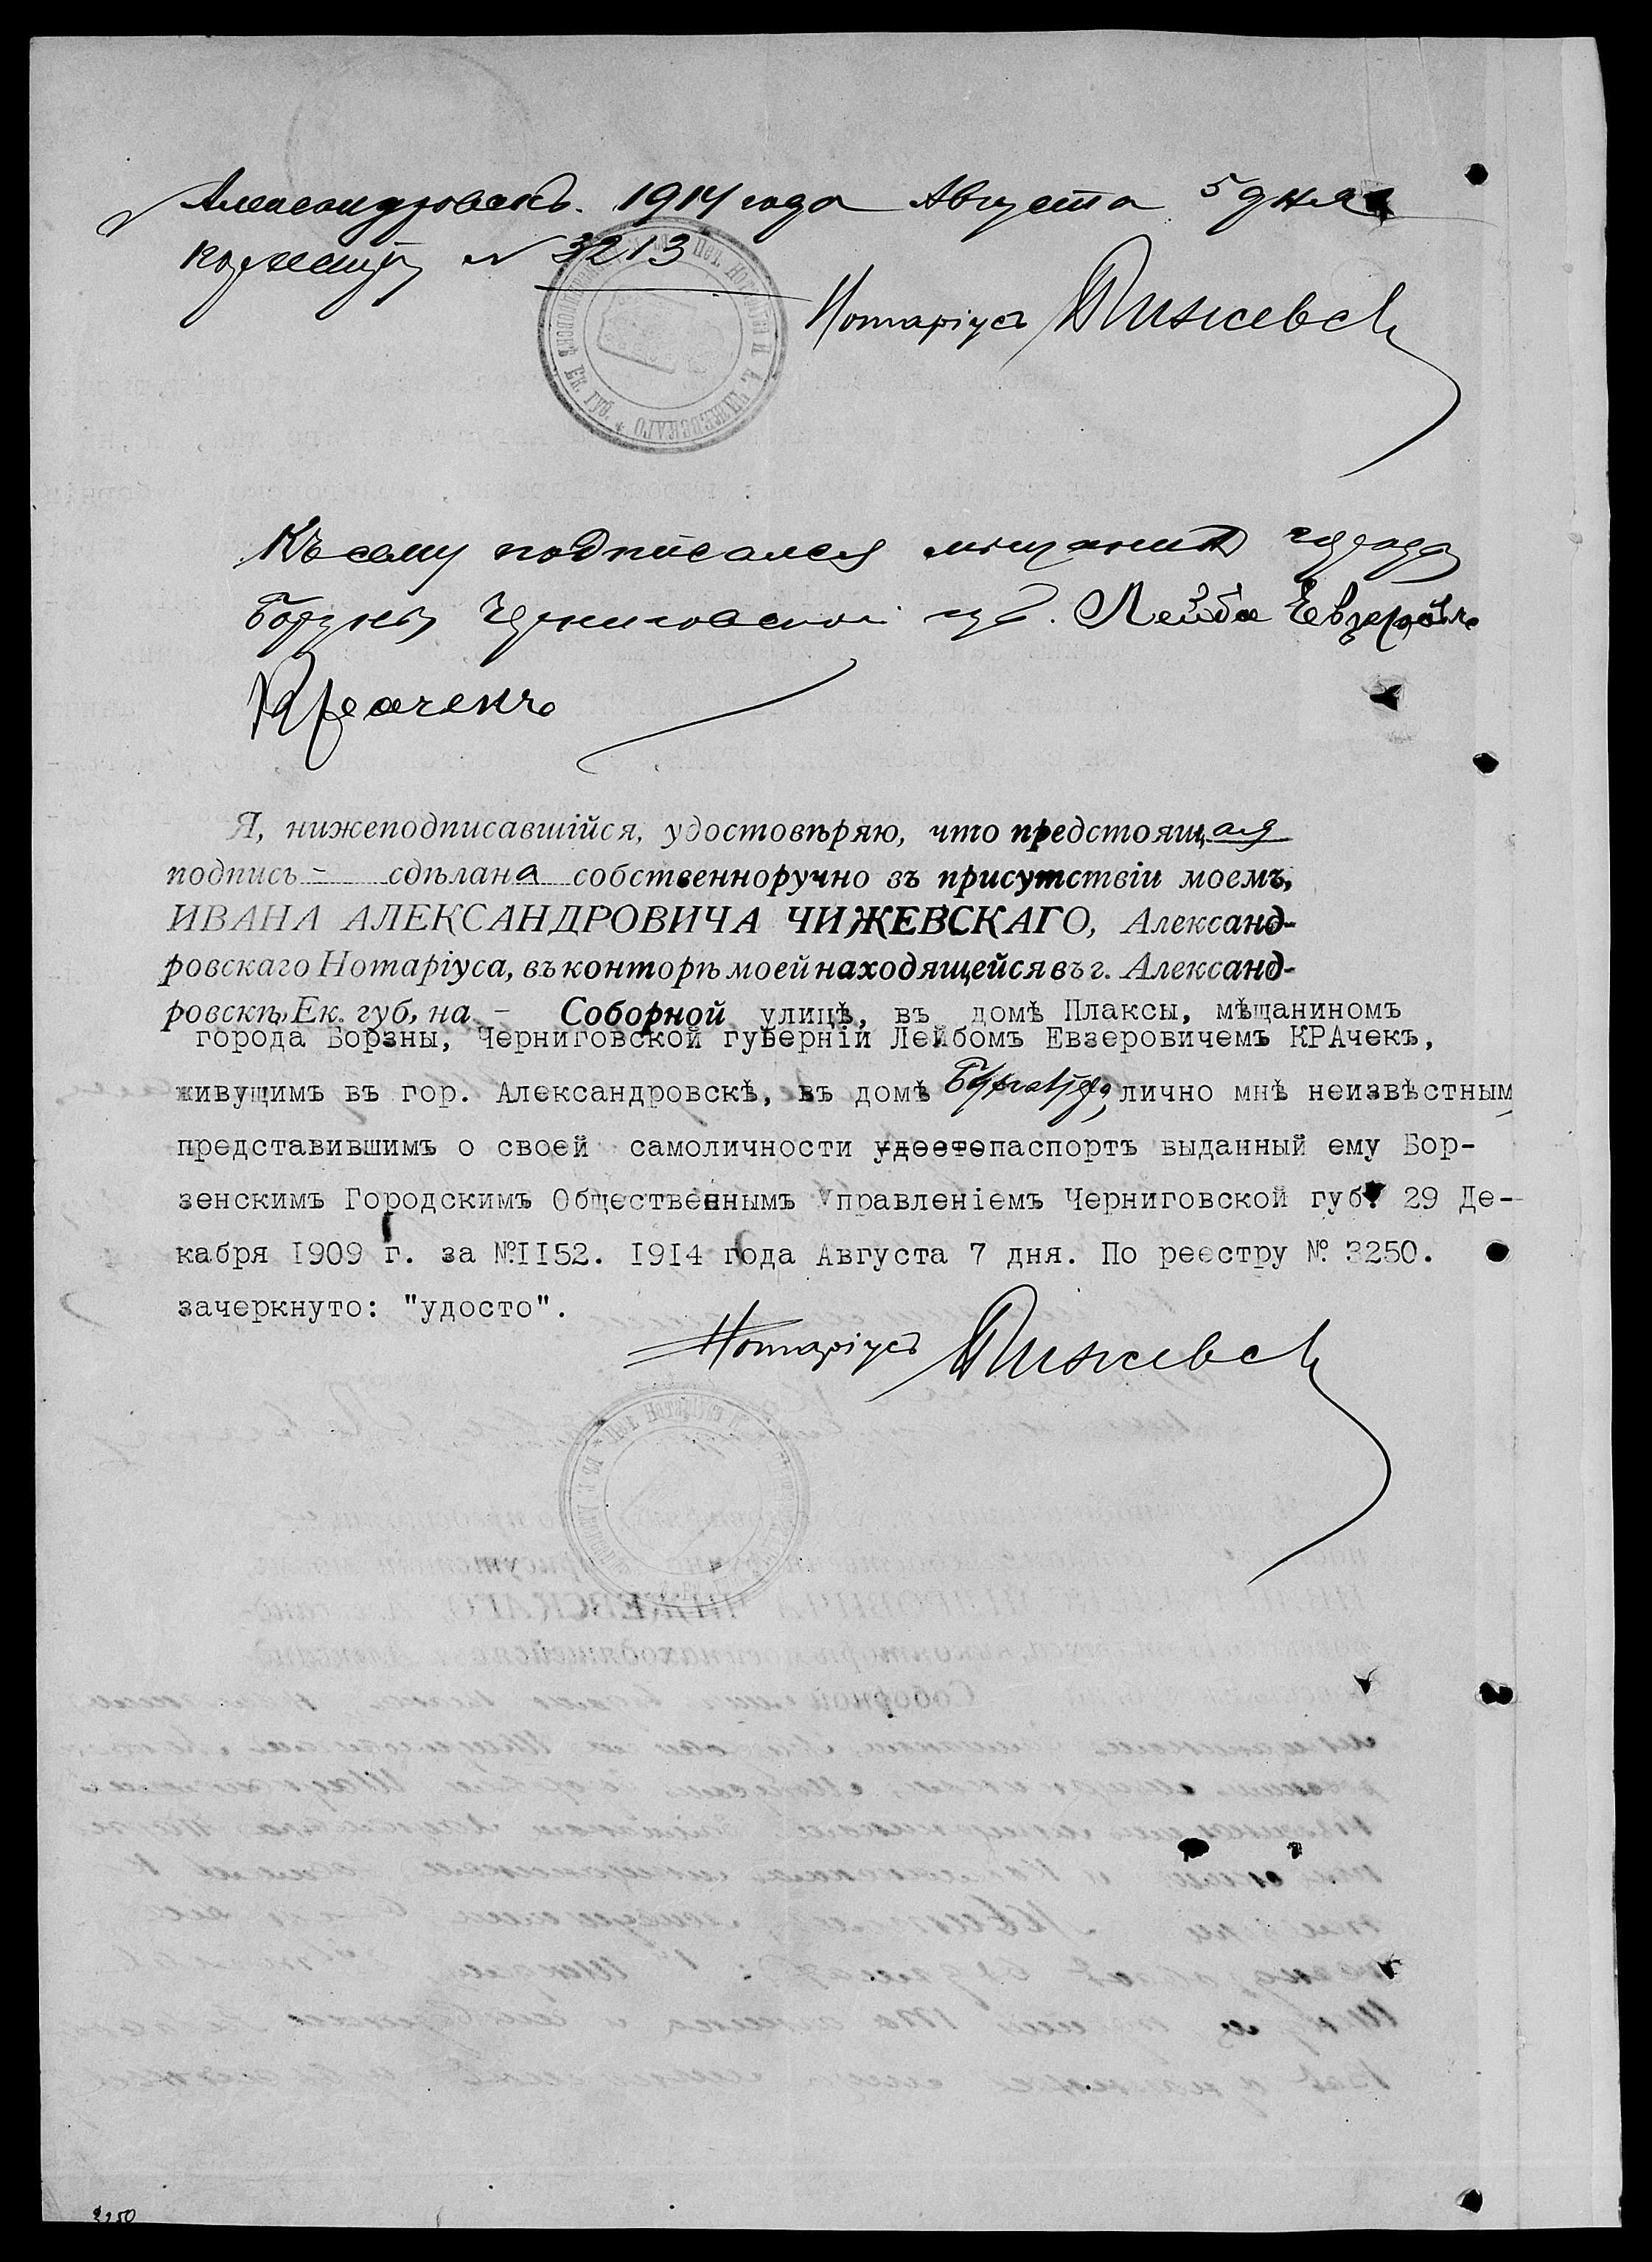 Александровскъ. 1914 года Августа 5 дня
№ 3213
Нотаріусъ Чижевск
Къ сему подписался мѣщанинъ города
Борзны Черниговской губ. Лейба Евзеровъ
Крачекъ
Я, нижеподписавшійся, удостовѣряю, что предстоящая
подпись - сдѣлана собственноручно въ присутствіи моемъ,
ИВАНА АЛЕКСАНДРОВИЧА ЧИЖЕВСКАГО, Александ-
ровскаго Нотаріуса, въ конторѣ моей находящейся въ г. Александ-
ровскѣ, Ек. губ, на - Соборной улицѣ, въ домѣ Плаксы, мѣщаниномъ
города Борзны, Черниговской губерніи Лейбомъ Евзеровичемъ КРАчекъ,
живущимъ въ гор. Александровскѣ, въ домѣ лично мнѣ неизвѣстным
представившимъ о своей самоличности удостопаспортъ выданный ему Бор-
зенскимъ Городскимъ Общественнымъ Управленіемъ Черниговской губ. 29 Де-
кабря 1909 г. за №1152. 1914 года Августа 7 дня. По реестру № 3250.
зачеркнуто: "удосто".
Нотаріусъ Чижевск
3250